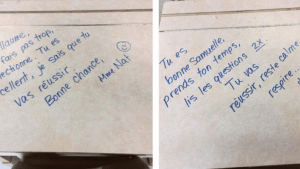 llaume,
fais pas trop,
ectionne, Tu es
cellent, je sais que tu
vas réussir.
Bonne chance,
Mme Nat
Tu es
bonne Samuelle,
prends ton temps,
lis les questions 2x.
Tu vas
réussir, reste calme
respire